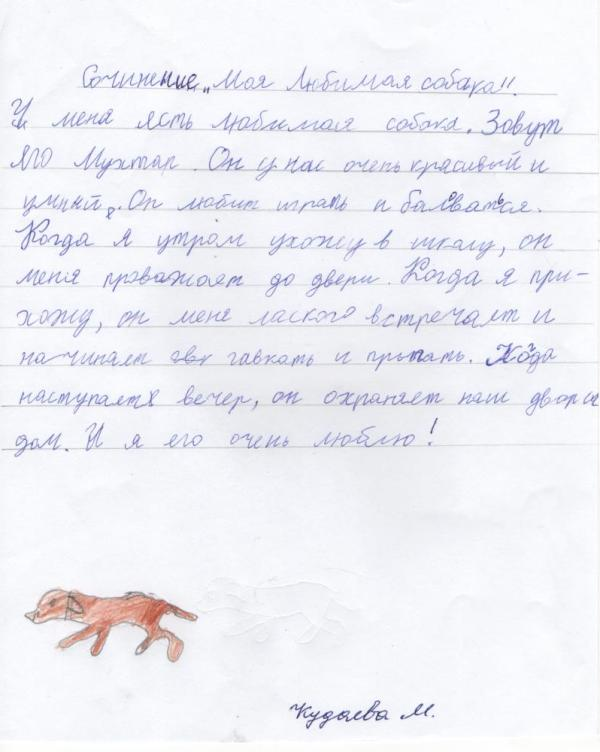 Сочинение „Моя любимая собака".
У меня ясть любимая собака. Зовут
яго Мухтар. Он у нас очень красивый и
умный. Он любит играть и баловаться.
Когда я утром ухожу в шкалу, он
меня праважает до двери. Когда я при-
хожу, он меня лаского встречает и
начинает гавкать и прыгать. Кода
наступает вечер, он охраняет наш двор и
дом. И я его очень люблю!
Кудаева М.